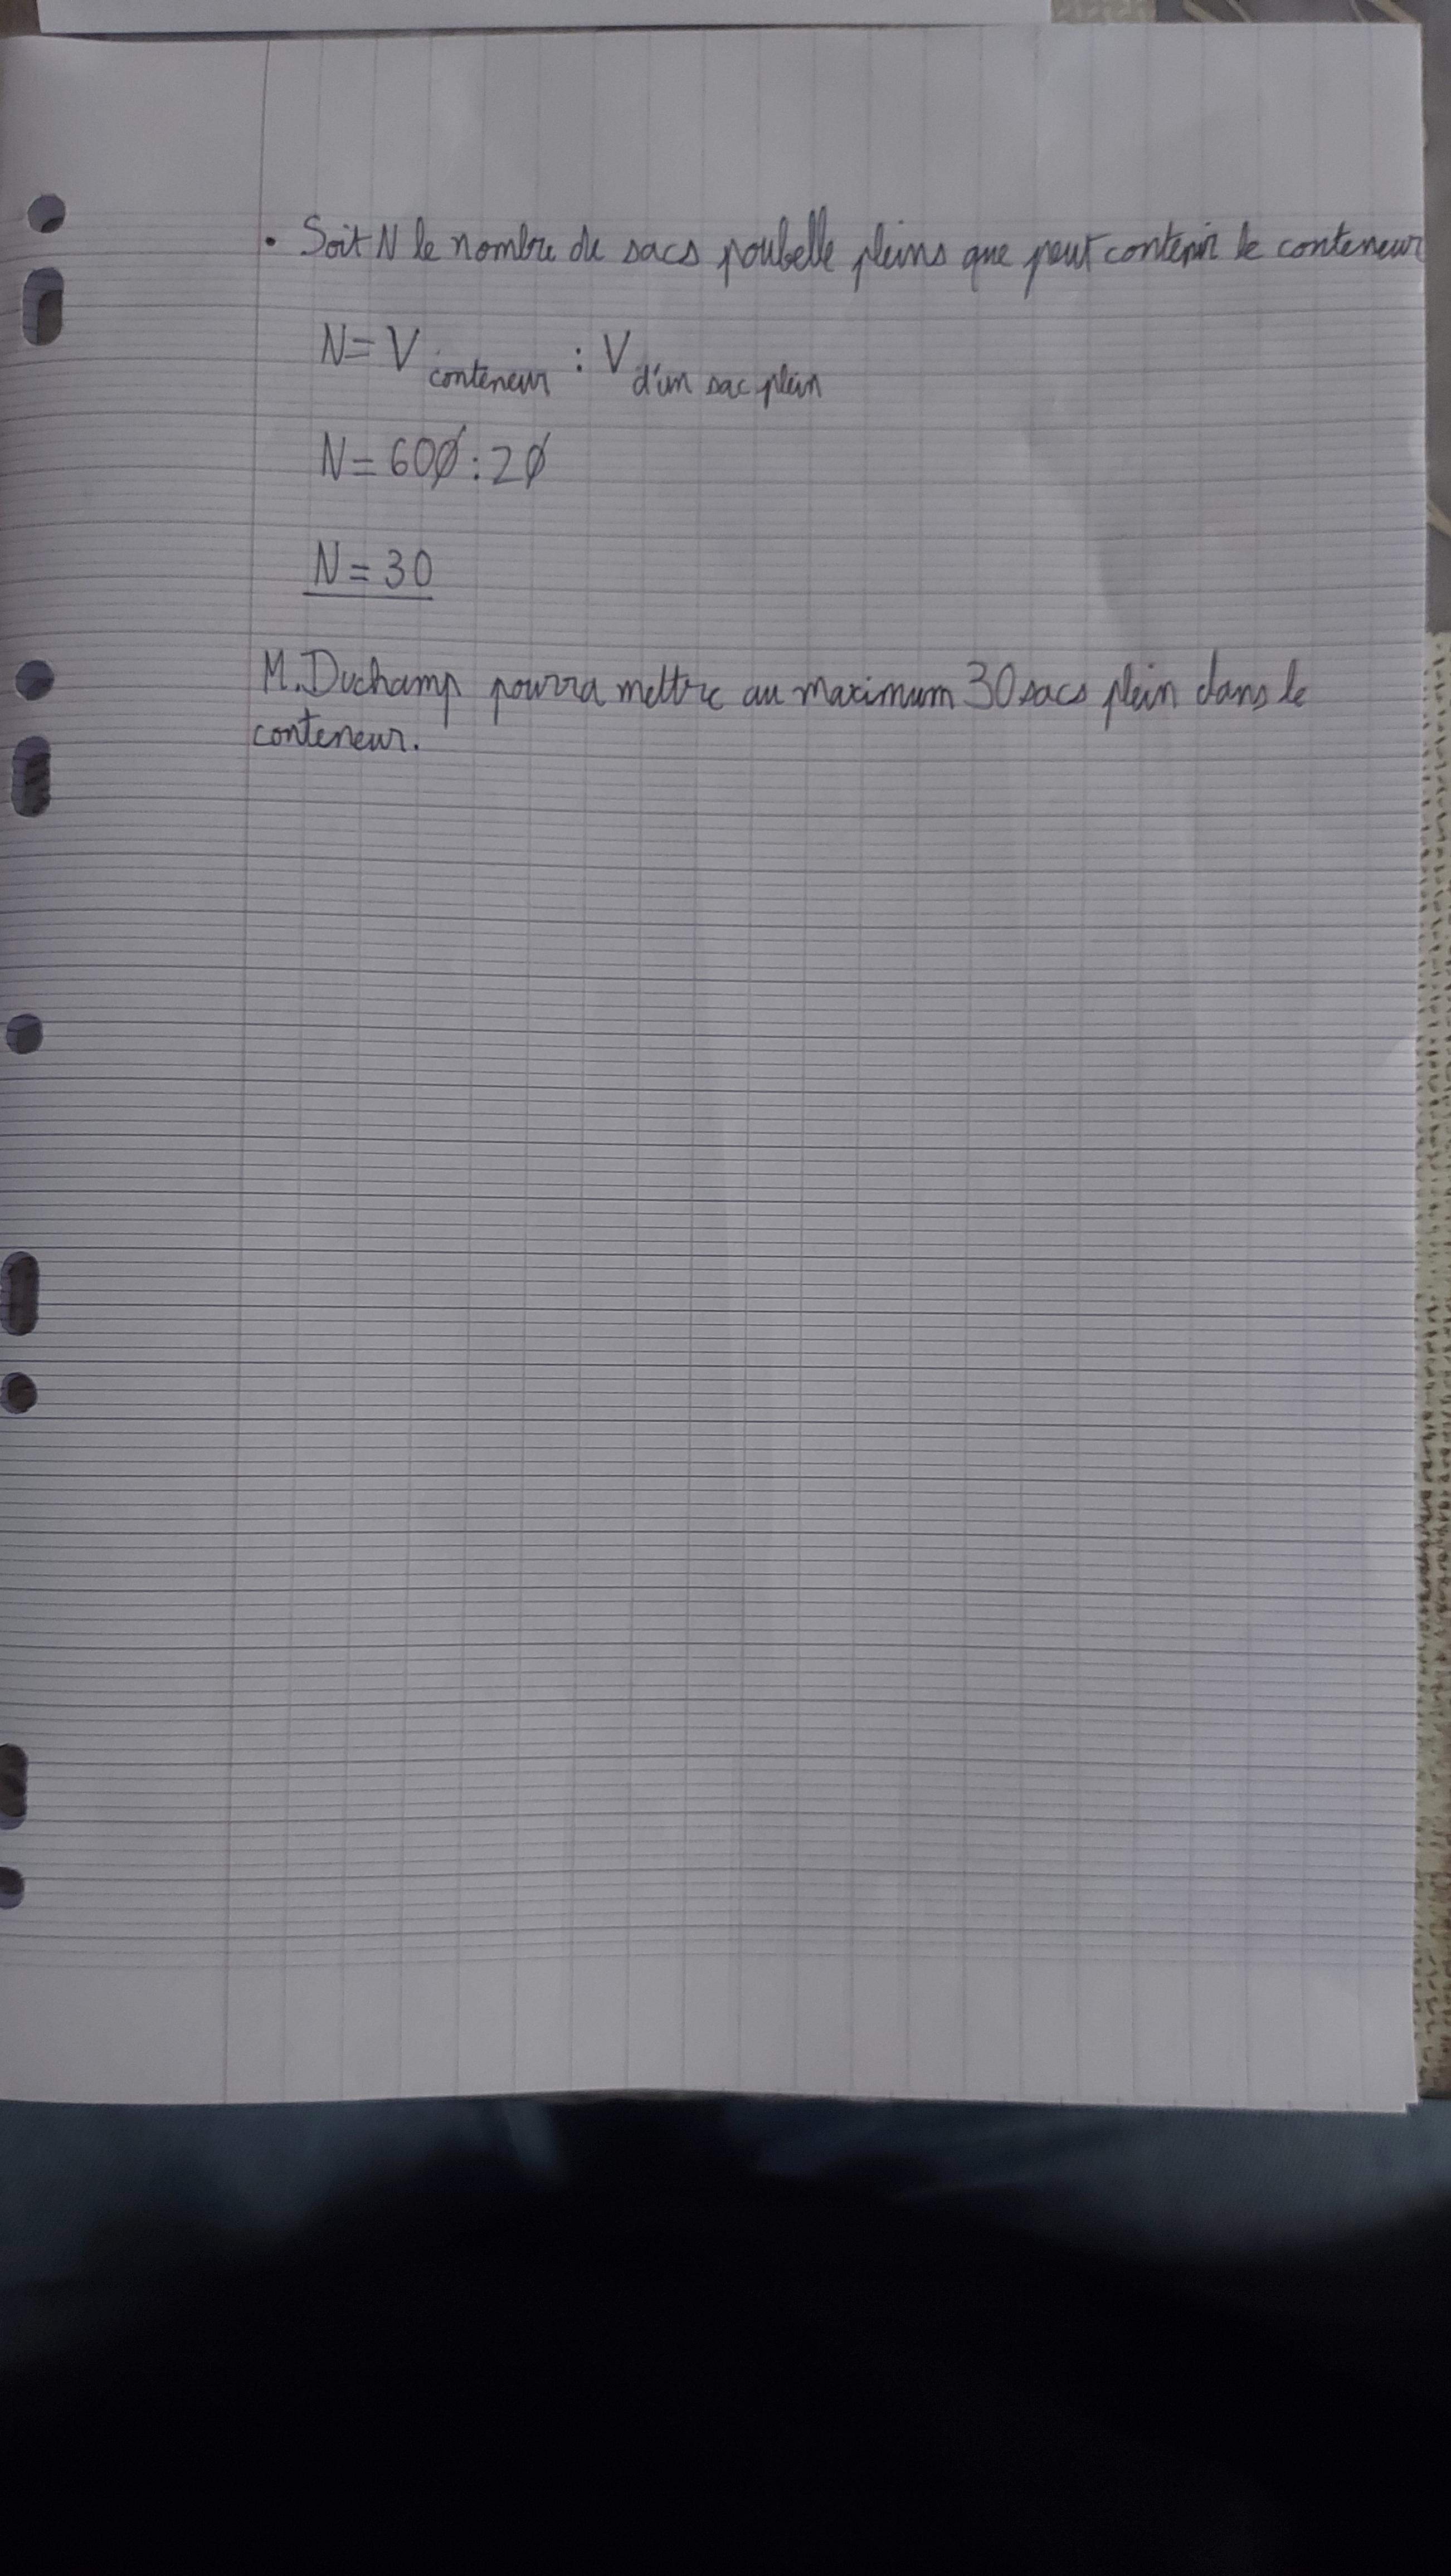 • Soit N le nombre de sacs poubelle pleins que peut contenir le conteneur
N = V conteneur : V d'un sac plein
N = 600 : 20
N = 30
M. Duchamp pourra mettre au maximum 30 sacs plein dans le
conteneur.